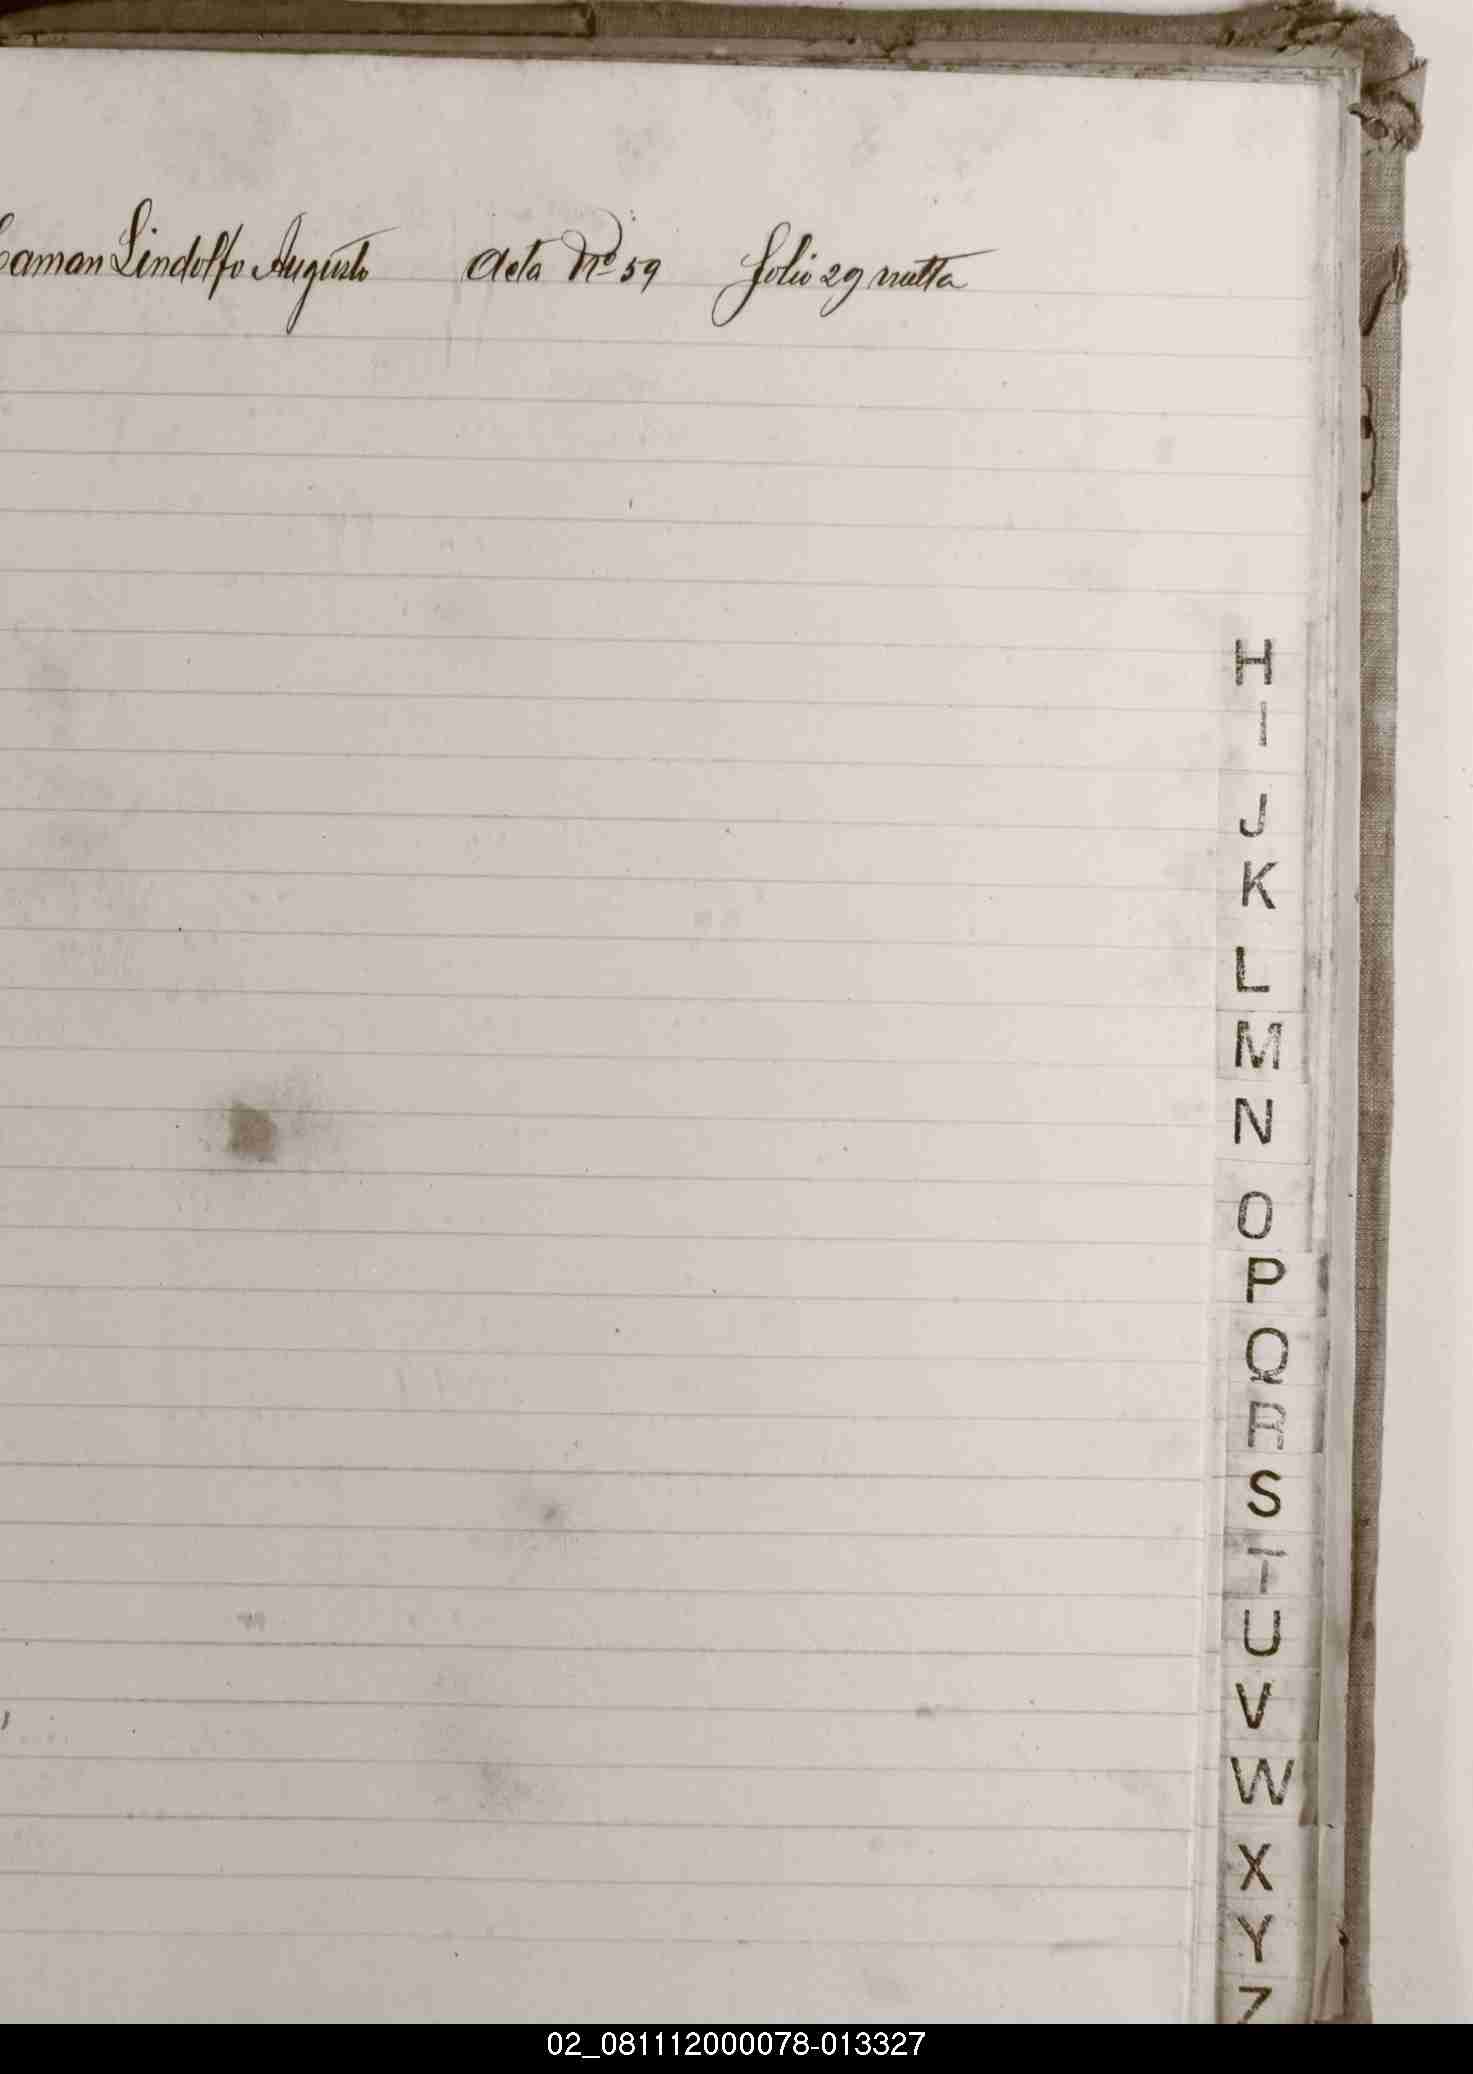 Caman Lindolfo Augusto Acta Nº 59 folio 29 vuelta
H
I
J
K
L
M
N
O
P
Q
R
S
T
U
V
W
X
Y
Z
02_081112000078-013327